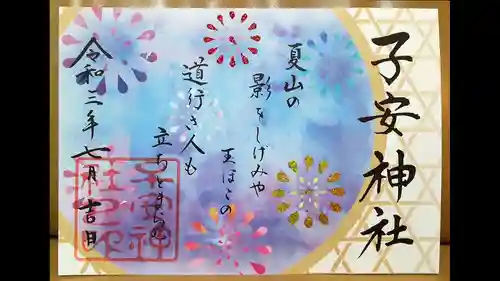 子安神社
夏山の
影をしげみや
玉ほこの
道行き人も
立ちとまるらむ
令和三年七月吉日